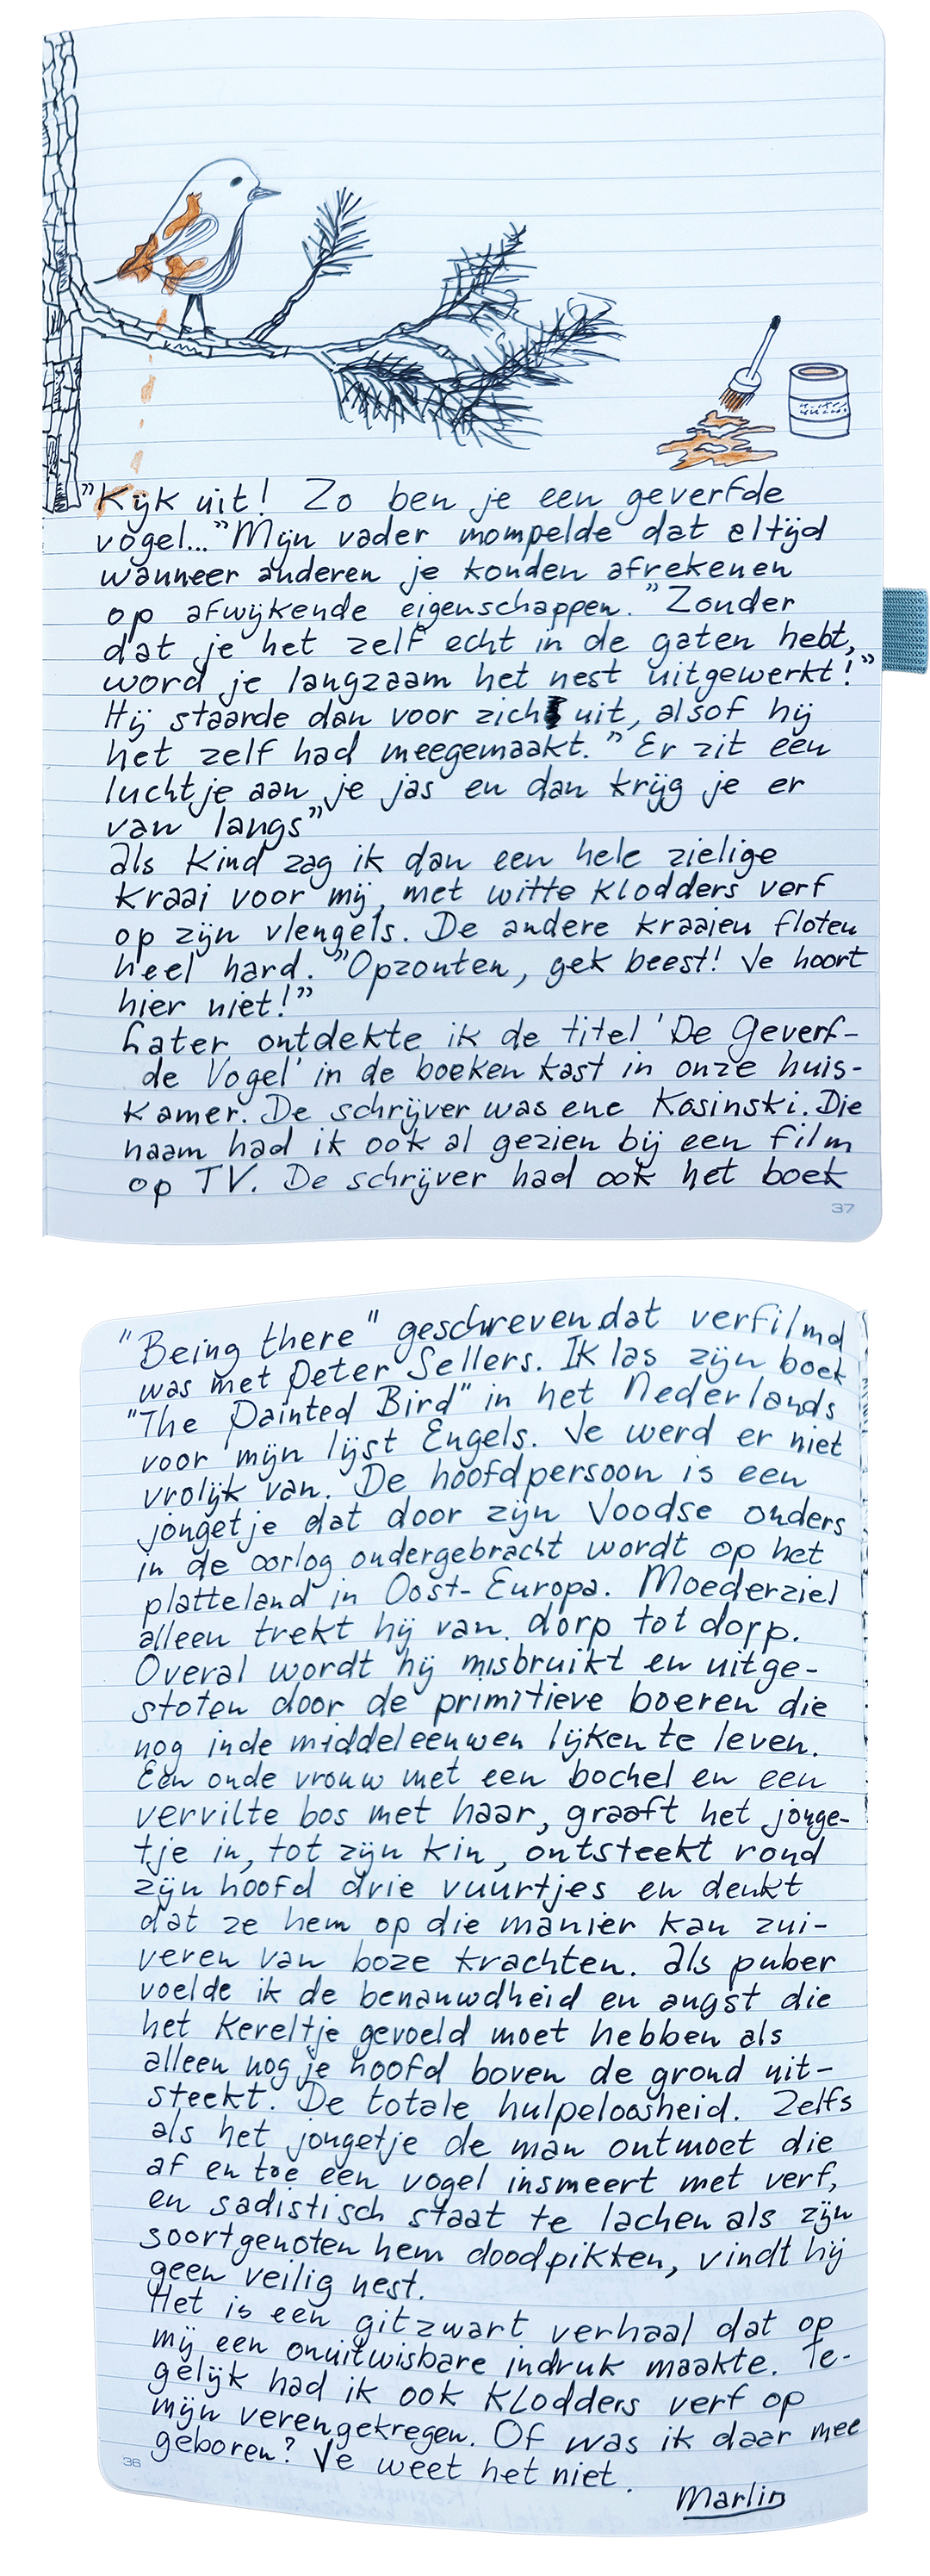 "Kijk uit! Zo ben je een geverfde
vogel..." Mijn vader mompelde dat altijd
wanneer anderen je konden afrekenen
op afwijkende eigenschappen. "Zonder
dat je het zelf echt in de gaten hebt,
word je langzaam het nest uitgewerkt!"
Hij staarde dan voor zich uit, alsof hij
het zelf had meegemaakt. "Er zit een
luchtje aan je jas en dan krijg je er
van langs"
Als kind zag ik dan een hele zielige
kraai voor mij, met witte klodders verf
op zijn vlengels. De andere kraaien floten
heel hard. "Opzouten, gek beest! Je hoort
hier niet!"
Later ontdekte ik de titel 'De Geverf-
de Vogel' in de boeken kast in onze huis-
kamer. De schrijver was ene Kosinski. Die
naam had ik ook al gezien bij een film
op TV. De schrijver had ook het boek
37
"Being there" geschreven dat verfilmd
was met Peter Sellers. Ik las zijn boek
"The Painted Bird" in het Nederlands
voor mijn lijst Engels. Je werd er niet
vrolijk van. De hoofdpersoon is een
jongetje dat door zijn Joodse ouders
in de oorlog ondergebracht wordt op het
platteland in Oost-Europa. Moederziel
alleen trekt hij van dorp tot dorp.
Overal wordt hij misbruikt en uitge-
stoten door de primitieve boeren die
nog in de middeleeuwen lijken te leven.
Een oude vrouw met een bochel en een
vervilte bos met haar, graaft het jonge-
tje in, tot zijn kin, ontsteekt rond
zijn hoofd drie vuurtjes en denkt
dat ze hem op die manier kan zui-
veren van boze krachten. Als puber
voelde ik de benauwdheid en angst die
het kereltje gevoeld moet hebben als
alleen nog je hoofd boven de grond uit-
steekt. De totale hulpeloosheid. Zelfs
als het jongetje de man ontmoet die
af en toe een vogel insmeert met verf,
en sadistisch staat te lachen als zijn
soortgenoten hem doodpikken, vindt hij
geen veilig nest.
Het is een gitzwart verhaal dat op
mij een onuitwisbare indruk maakte. Te-
gelijk had ik ook klodders verf op
mijn veren gekregen. Of was ik daar mee
geboren? Je weet het niet.
36
Marlin